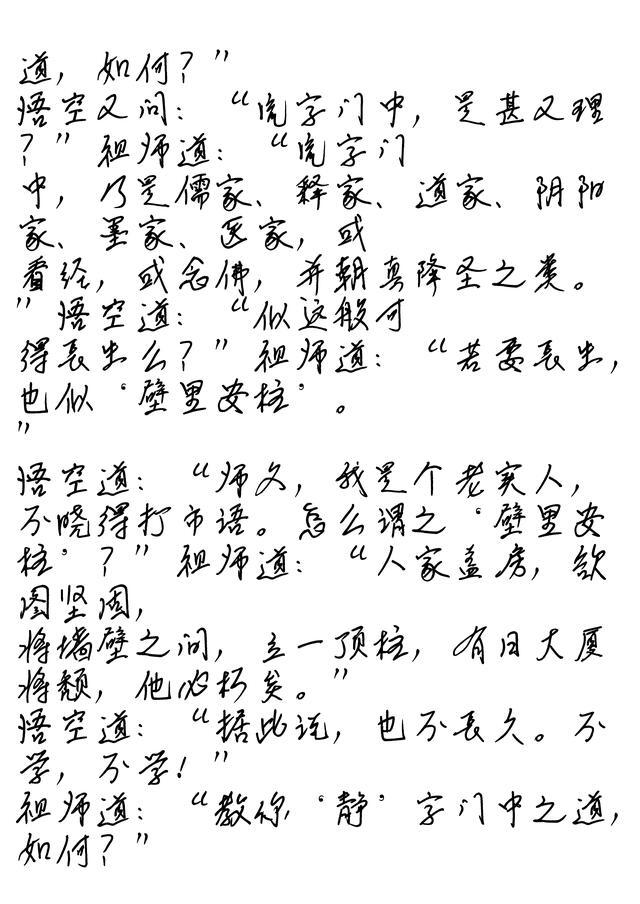 道，如何？”
悟空又问：“流字门中，是甚义理
？”祖师道：“流字门
中，乃是儒家、释家、道家、阴阳
家、墨家、医家，或
看经，或念佛，并朝真降圣之类。
”悟空道：“似这般可
得长生么？”祖师道：“若要长生，
也似‘壁里安柱’。
”
悟空道：“师父，我是个老实人，
不晓得打市语。怎么谓之‘壁里安
柱’？”祖师道：“人家盖房，欲
图坚固，
将墙壁之间，立一顶柱，有日大厦
将颓，他必朽矣。”
悟空道：“据此说，也不长久。不
学，不学！”
祖师道：“教你‘静’字门中之道，
如何？”